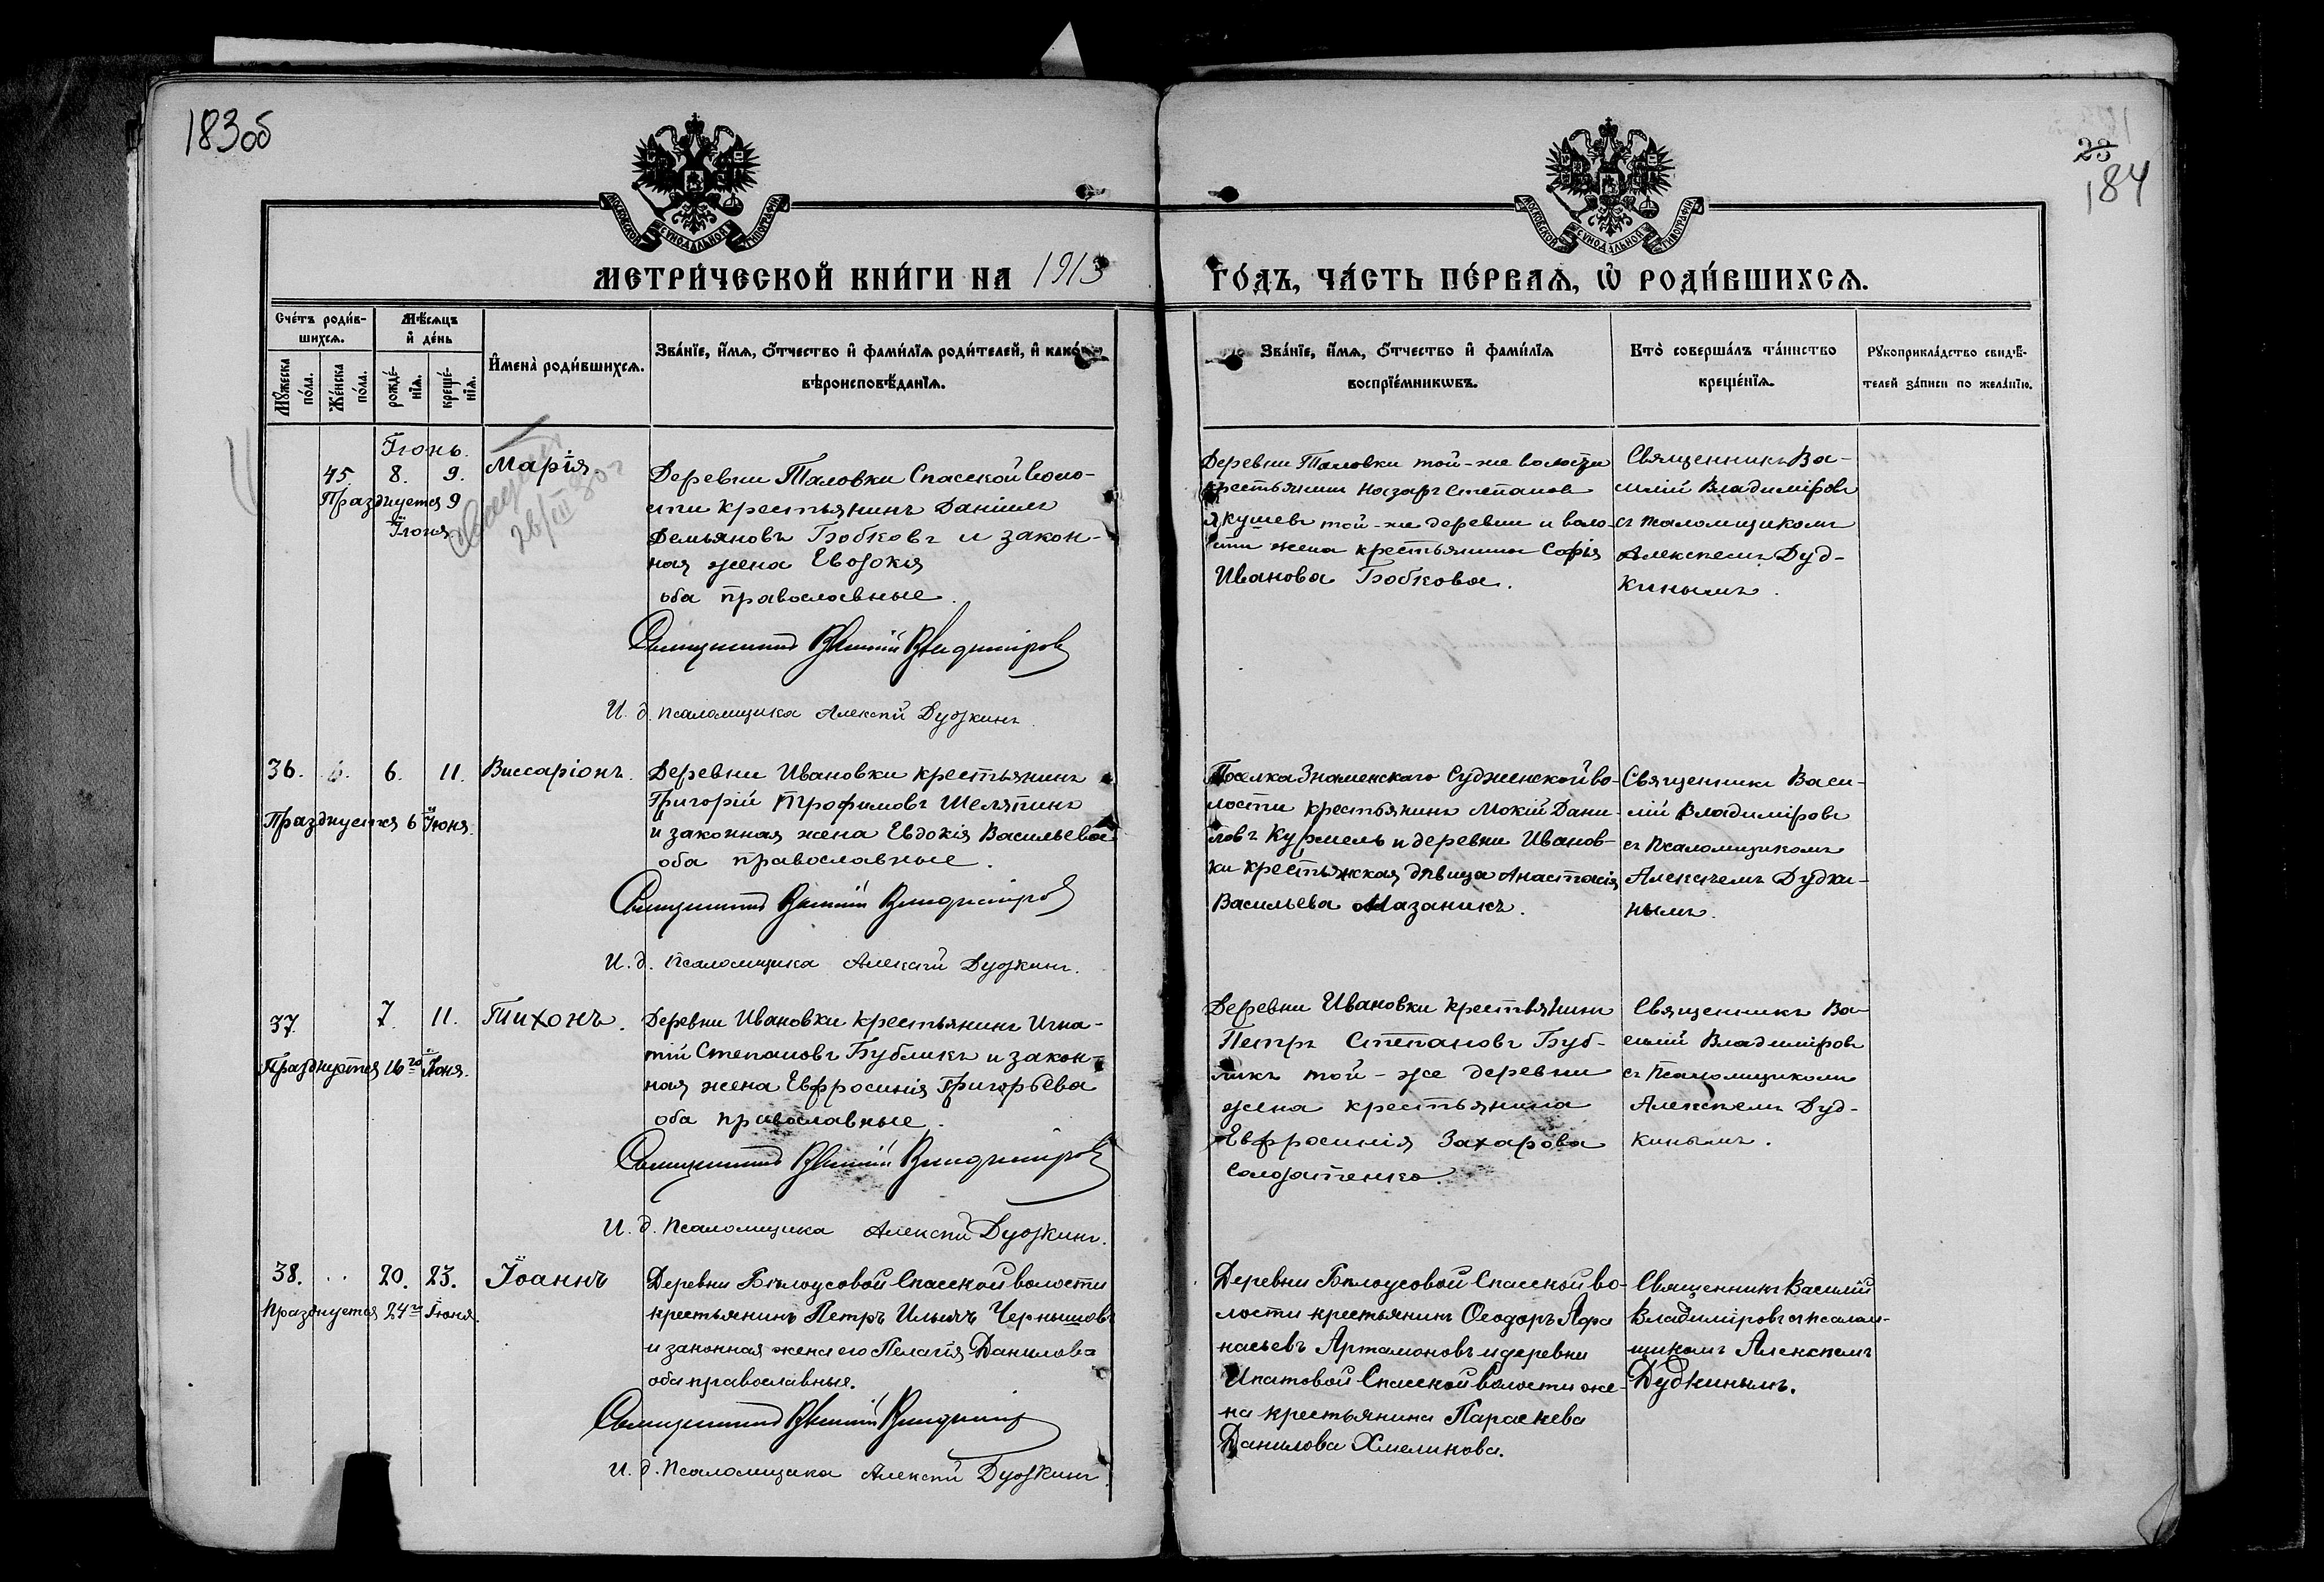 183об
23
184
МОСКОВСКОЙ СУНОДАЛЬНОЙ ТИПОГРАФІИ
МОСКОВСКОЙ СУНОДАЛЬНОЙ ТИПОГРАФІИ
МЕТРИ́ЧЕСКОЙ КНИ́ГИ НА 1913
ГО́ДЪ, ЧА́СТЬ ПЕ́РВАѦ, Ѡ҆ РОДИ́ВШИХСѦ.
Сче́тъ роди́в-
шихсѧ.
Мѣ́сѧцъ
и҆ де́нь
Мꙋ́жеска
по́ла.
Же́нска
по́ла.
рожде́-
нїѧ.
креще́-
нїѧ.
И҆мена̀ роди́вшихсѧ.
Зва́нїе, и҆́мѧ, ѻ҆́тчество и҆ фами́лїѧ роди́телей, и҆ како́гѡ
вѣроисповѣ́данїѧ.
Зва́нїе, и҆́мѧ, ѻ҆́тчество и҆ фами́лїѧ
воспрїе́мникѡвъ.
Кто̀ соверша́лъ та́инство
креще́нїѧ.
Рꙋкоприкла́дство свидѣ́-
телей за́писи по жела́нїю.
Іюнь.
45. 8. 9. Марія.
Празднуется 9
Іюня
26/III 50 г
Деревни Таловки Спасской воло-
сти крестьянинъ Даніилъ
Демьяновъ Бобковъ и закон-
ная жена Евдокія
оба православные.
Священникъ Василій Владиміровъ
И. д. псаломщика Алексѣй Дудкинъ.
Деревни Таловки той-же волости
крестьянинъ Назаръ Степановъ
Якушевъ той-же деревни и воло-
сти жена крестьянина Софія
Иванова Бобкова.
Священникъ Ва-
силій Владиміровъ
съ псаломщикомъ
Алексѣемъ Дуд-
кинымъ.
36. 6. 11. Виссаріонъ.
Празднуется 6 Іюня.
Деревни Ивановки крестьянинъ
Григорій Трофимовъ Шеляпинъ
и законная жена Евдокія Васильева
оба православные.
Священникъ Василій Владиміровъ
И. д. псаломщика Алексѣй Дудкинъ.
Поселка Знаменскаго Судженской во-
лости крестьянинъ Мокій Дани-
ловъ Курмель и деревни Иванов-
ки крестьянская дѣвица Анастасія
Васильева Мазаникъ.
Священникъ Васи-
лій Владиміровъ
съ псаломщикомъ
Алексѣемъ Дудки-
нымъ.
37. 7. 11. Тихонъ.
Празднуется 16го Іюня.
Деревни Ивановки крестьянинъ Игна-
тій Степановъ Бубликъ и закон-
ная жена Евфросинія Григорьева
оба православные.
Священникъ Василій Владиміровъ
И. д. псаломщика Алексѣй Дудкинъ.
Деревни Ивановки крестьянинъ
Петръ Степановъ Буб-
ликъ той-же деревни
жена крестьянина
Евфросинія Захарова
Солодатенко.
Священникъ Ва-
силій Владиміровъ
съ псаломщикомъ
Алексѣемъ Дуд-
кинымъ.
38. 20. 23. Іоаннъ
Празднуется 24го Іюня.
Деревни Бѣлоусовой Спасской волости
крестьянинъ Петръ Ильичъ Чернышовъ
и законная жена его Пелагія Данилова
оба православные.
Священникъ Василій Владиміровъ
И. д. псаломщика Алексѣй Дудкинъ.
Деревни Бѣлоусовой Спасской во-
лости крестьянинъ Ѳеодоръ Афа
насьевъ Артамоновъ и деревни
Ипатовой Спасской волости же-
на крестьянина Параскева
Данилова Хмелинова.
Священникъ Василій
Владиміровъ съ псалом-
щикомъ Алексѣемъ
Дудкинымъ.